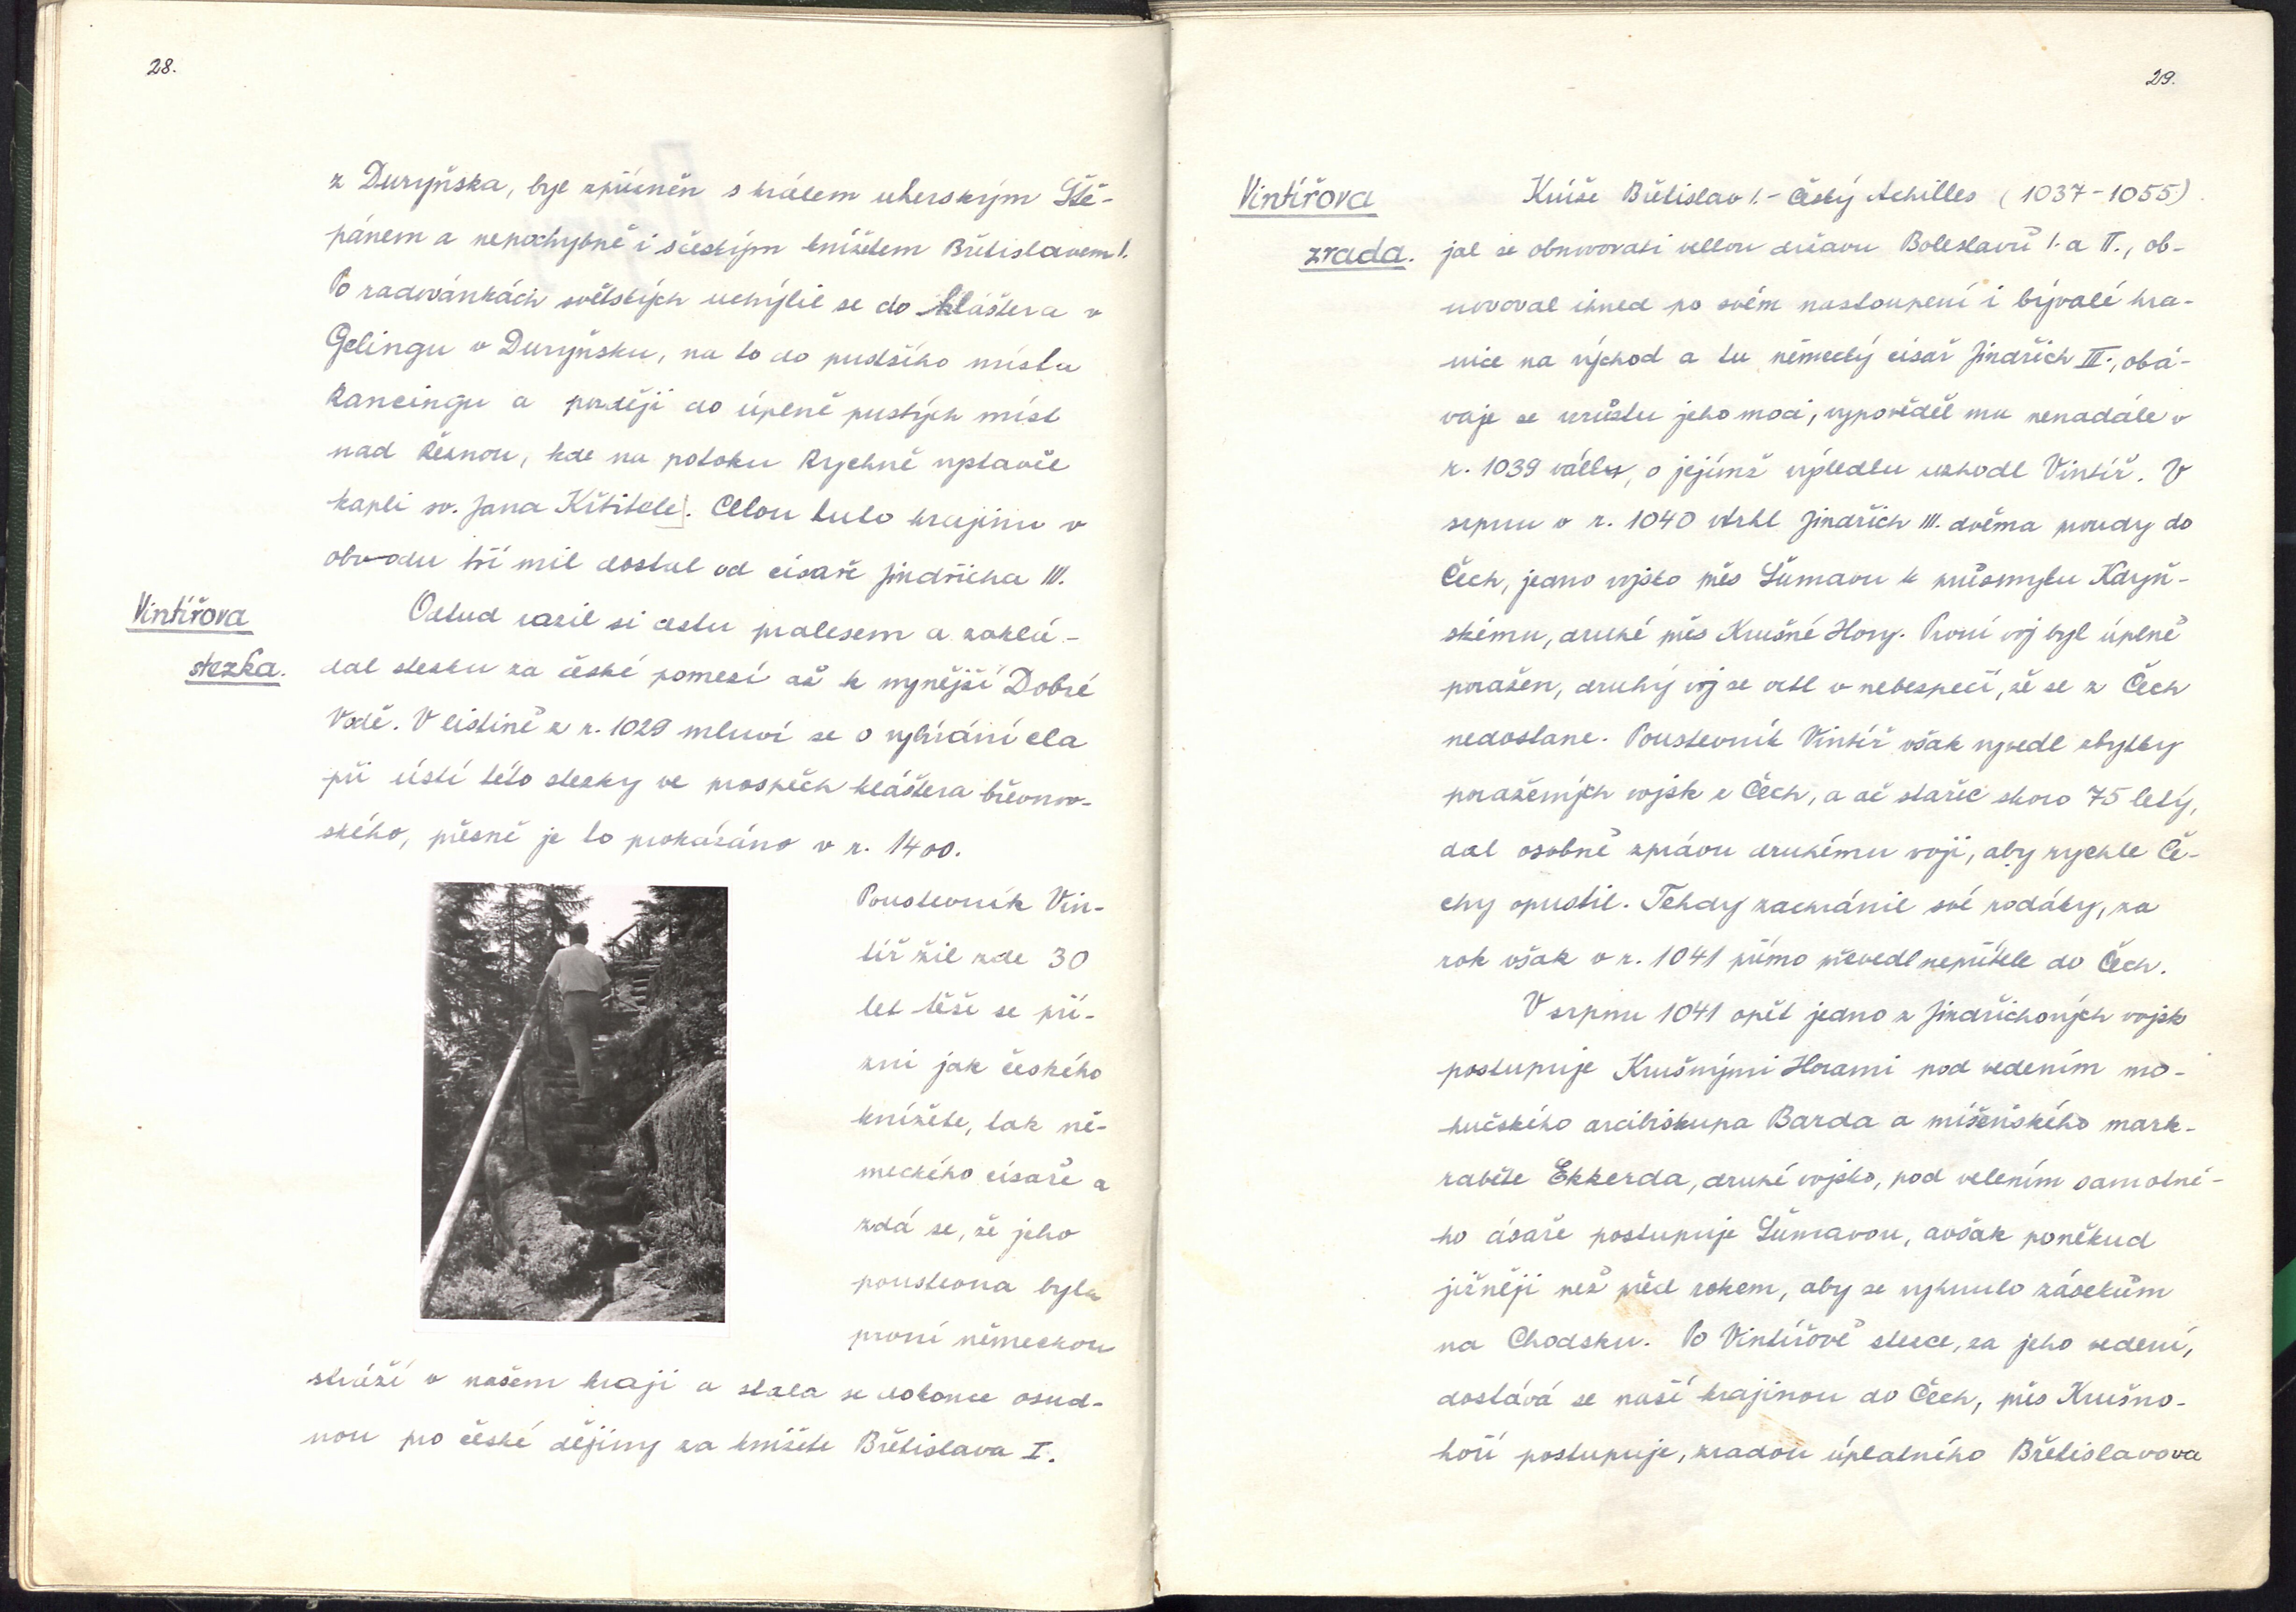 28.
z Duryňska, byl spřízněn s králem uherským Ště-
pánem a nepochybně i s českým knížetem Břetislavem I.
Po radovánkách světských uchýlil se do kláštera v
Gelingu v Duryňsku, na to do pustšího místa
Rancingu a později do úplně pustých míst
nad Řeznou, kde na potoku Rychně vystavěl
kapli sv. Jana Křtitele. Celou tuto krajinu v
obvodu tří mil dostal od císaře Jindřicha III.
Vintířova
stezka.
Odtud razil si cestu pralesem a zaklá-
dal stezku za české pomezí až k nynější Dobré
Vodě. V listině z r. 1029 mluví se o vybírání cla
při ústí této stezky ve prospěch kláštera břevnov-
ského, přesně je to prokázáno v r. 1400.
Poustevník Vin-
tíř žil zde 30
let těše se pří-
zni jak českého
knížete, tak ně-
meckého císaře a
zdá se, že jeho
poustevna byla
první německou
stráží v našem kraji a stala se dokonce osud-
nou pro české dějiny za knížete Břetislava I.
29.
Vintířova
zrada.
Kníže Břetislav I. - Český Achilles (1037-1055)
jal se obnovovati velkou državu Boleslavů I. a II., ob-
novoval ihned po svém nastoupení i bývalé hra-
nice na východ a tu německý císař Jindřich III., obá-
vaje se vzrůstu jeho moci, vypověděl mu nenadále v
r. 1039 válku, o jejímž výsledku rozhodl Vintíř. V
srpnu v r. 1040 vtrhl Jindřich III. dvěma proudy do
Čech, jedno vojsko přes Šumavu k průsmyku Kdyň-
skému, druhé přes Krušné Hory. První voj byl úplně
poražen, druhý voj se octl v nebezpečí, že se z Čech
nedostane. Poustevník Vintíř však vyvedl zbytky
poražených vojsk z Čech, a ač stařec skoro 75 letý,
dal osobně zprávu druhému voji, aby rychle Če-
chy opustil. Tehdy zachránil své rodáky, za
rok však v r. 1041 přímo převedl nepřítele do Čech.
V srpnu 1041 opět jedno z Jindřichových vojsk
postupuje Krušnými Horami pod vedením mo-
hučského arcibiskupa Barda a míšeňského mark-
raběte Ekkerda, druhé vojsko, pod velením samotné-
ho císaře postupuje Šumavou, avšak poněkud
jižněji než před rokem, aby se vyhnulo zásekům
na Chodsku. Po Vintířově stezce, za jeho vedení,
dostává se naší krajinou do Čech, přes Krušno-
hoří postupuje, zradou úplatného Břetislavova